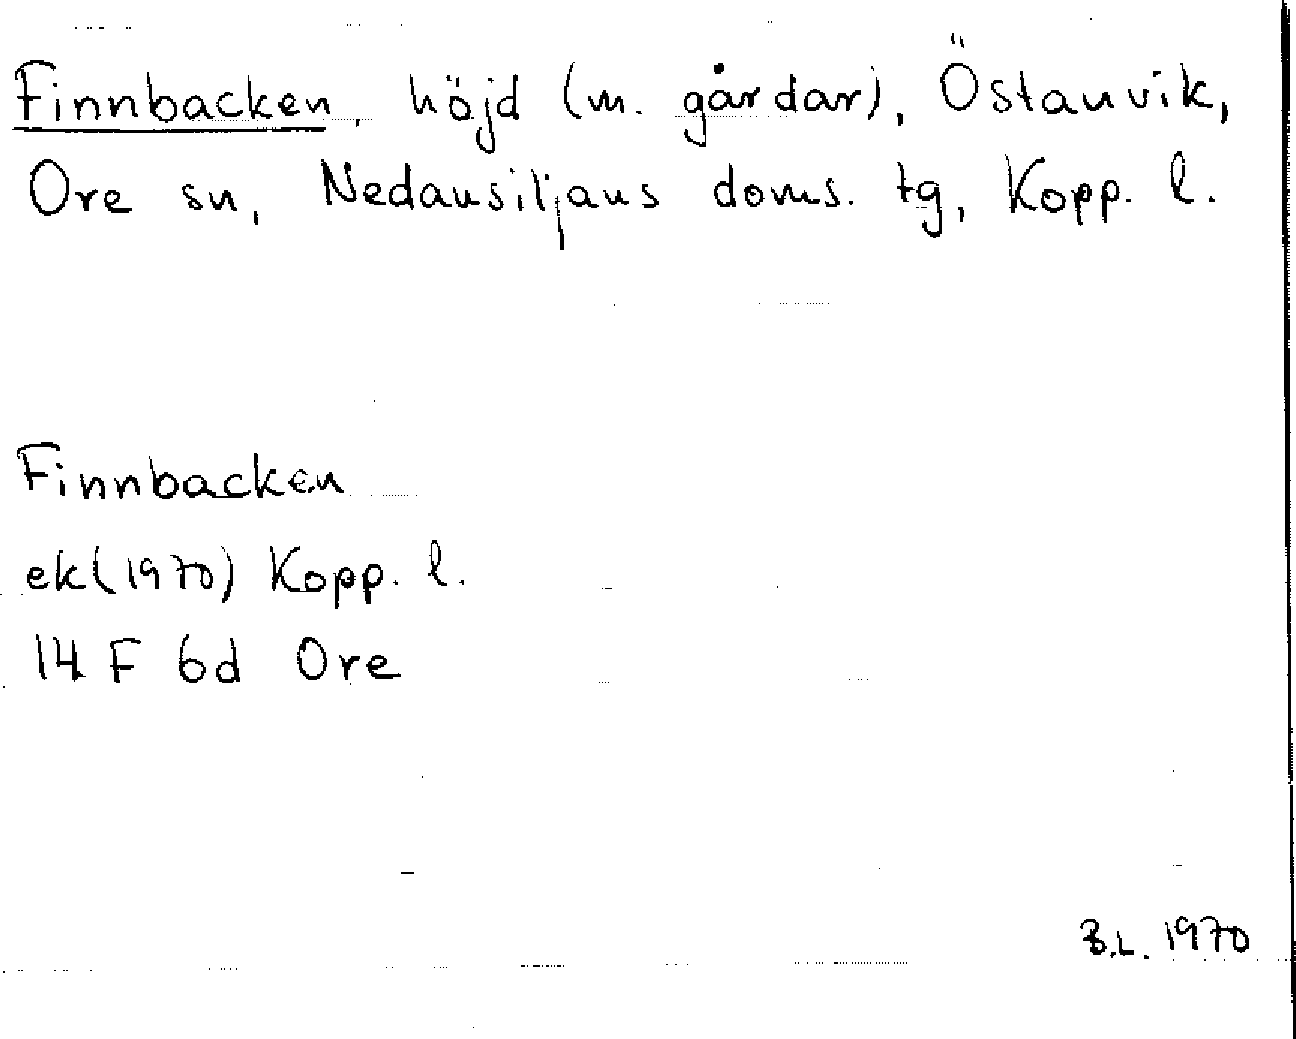 Finnbacken, höjd (m. gårdar), Östanvik,
Ore sn, Nedansiljans doms. tg, Kopp. l.
Finnbacken
ek(1970) Kopp. l.
14 F 6d Ore
B.L. 1970